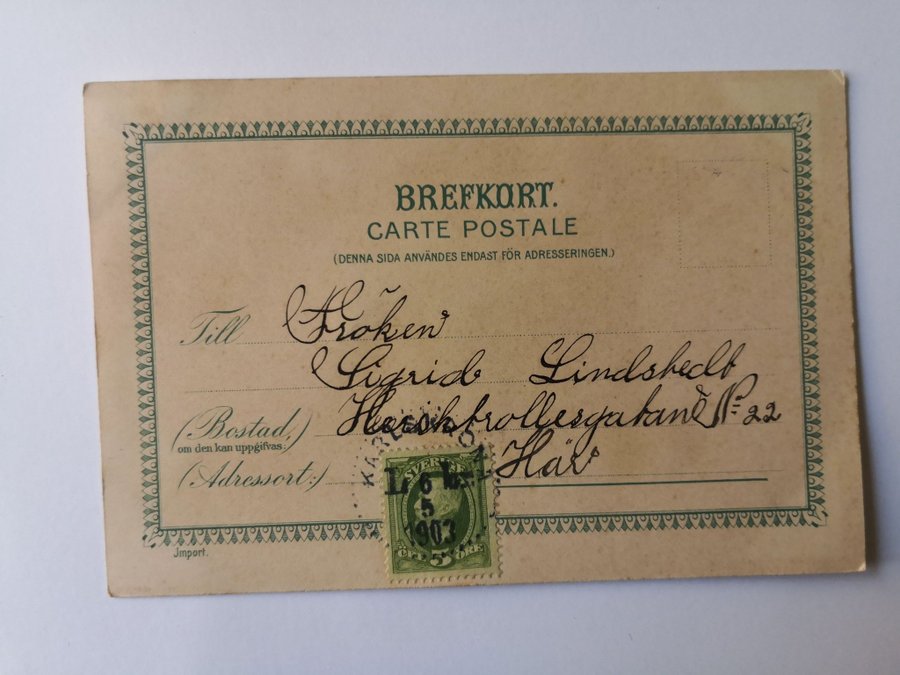 BREFKORT.
CARTE POSTALE
(DENNA SIDA ANVÄNDES ENDAST FÖR ADRESSERINGEN.)
Till Fröken
Sigrid Lindstedt
(Bostad,) No 22
om den kan uppgifvas:
(Adressort:) Här
SVERIGE
6
5
1903
5
ÖRE
Import.